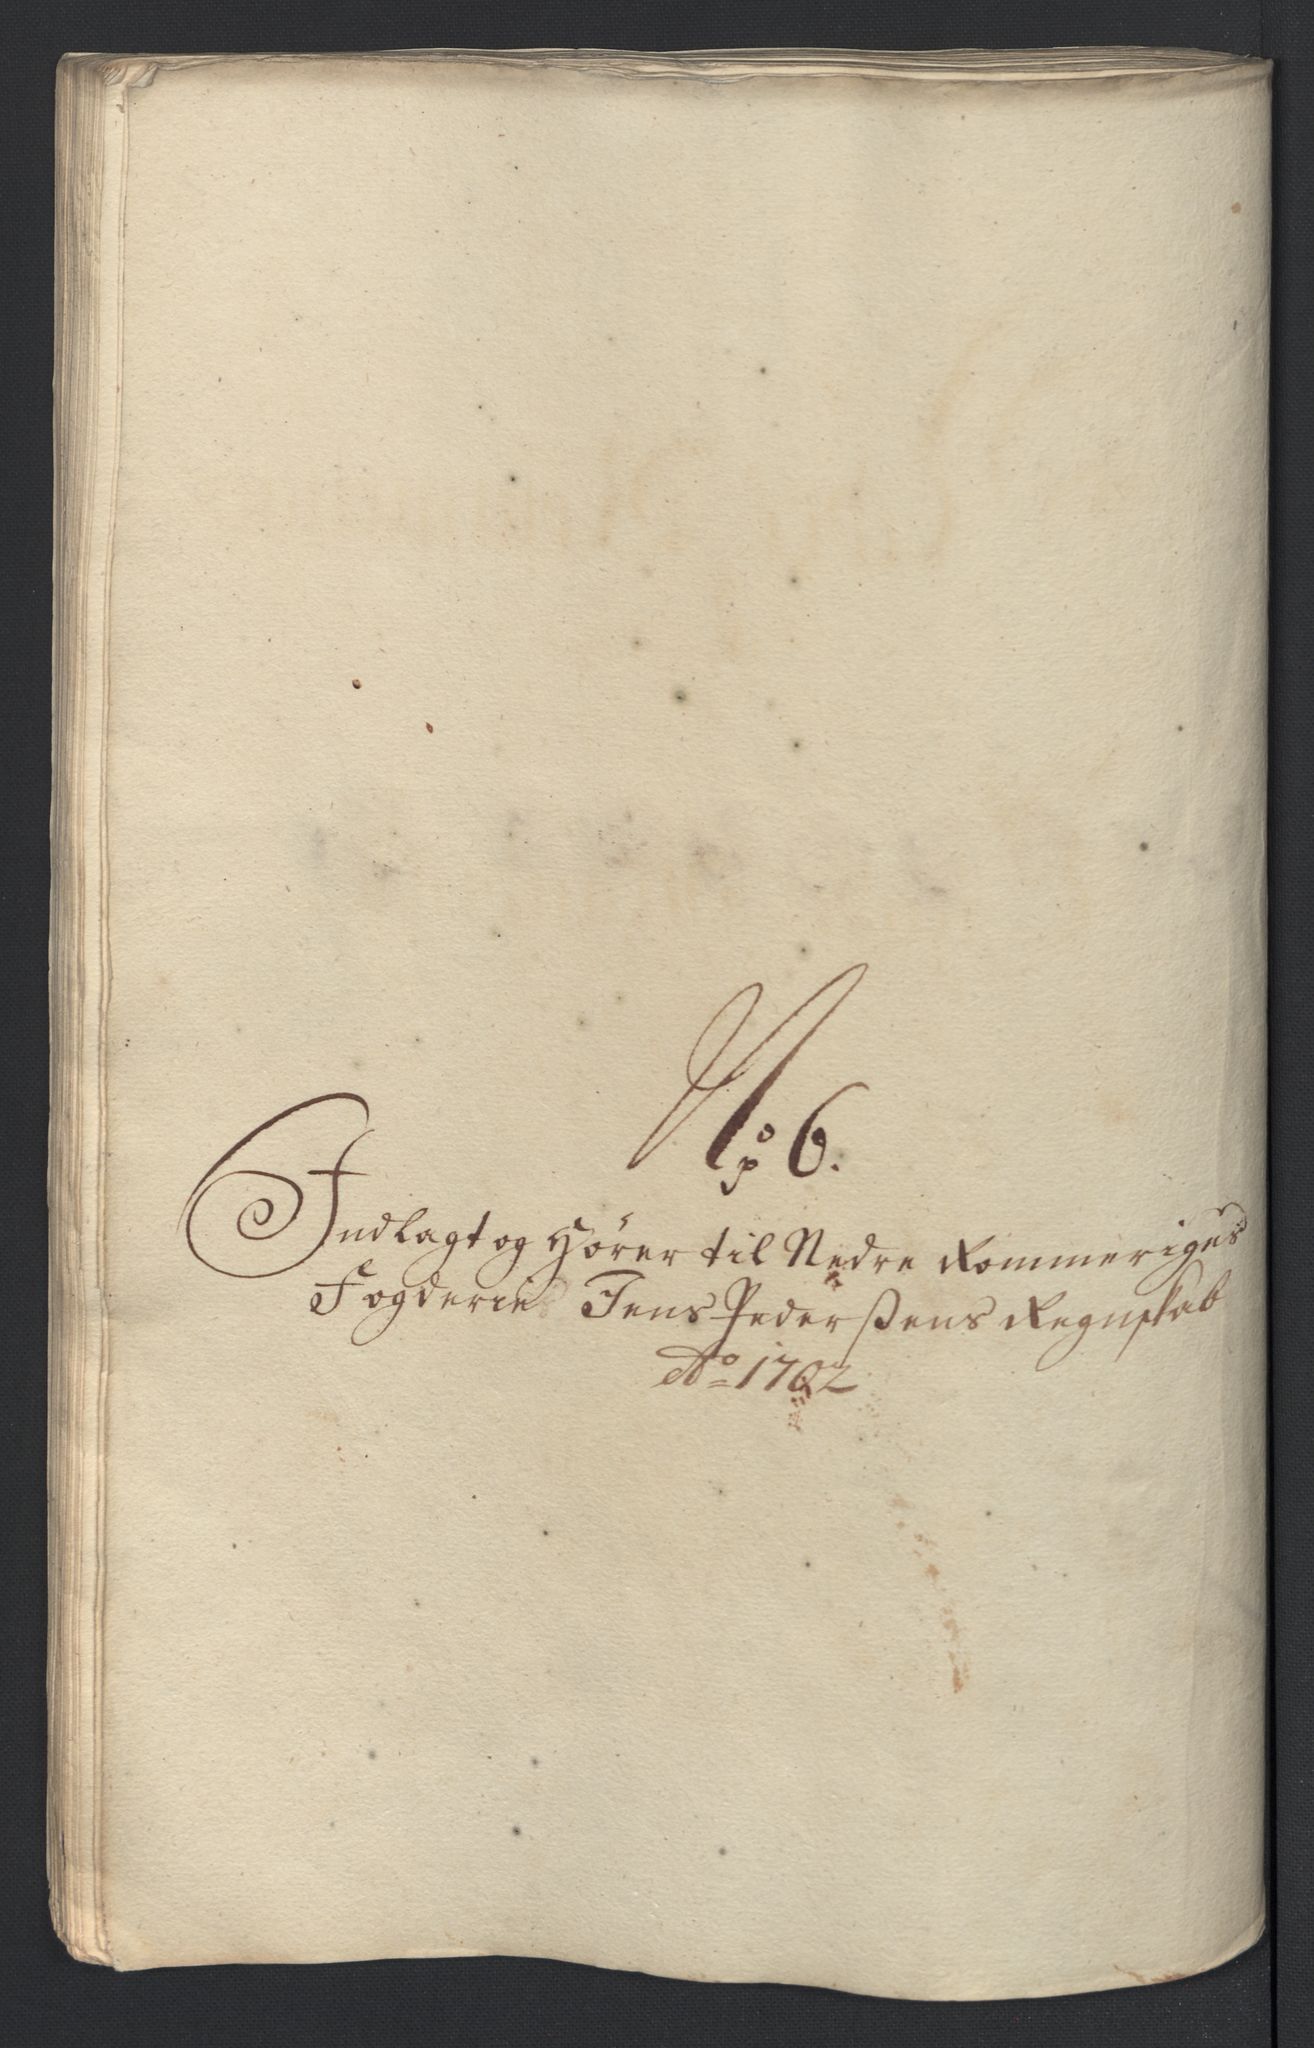 No 6.
Indlagt og Hører til Nedre Rommeriges
Fogderie Jens Pederßens Regnskab
Ao 1702